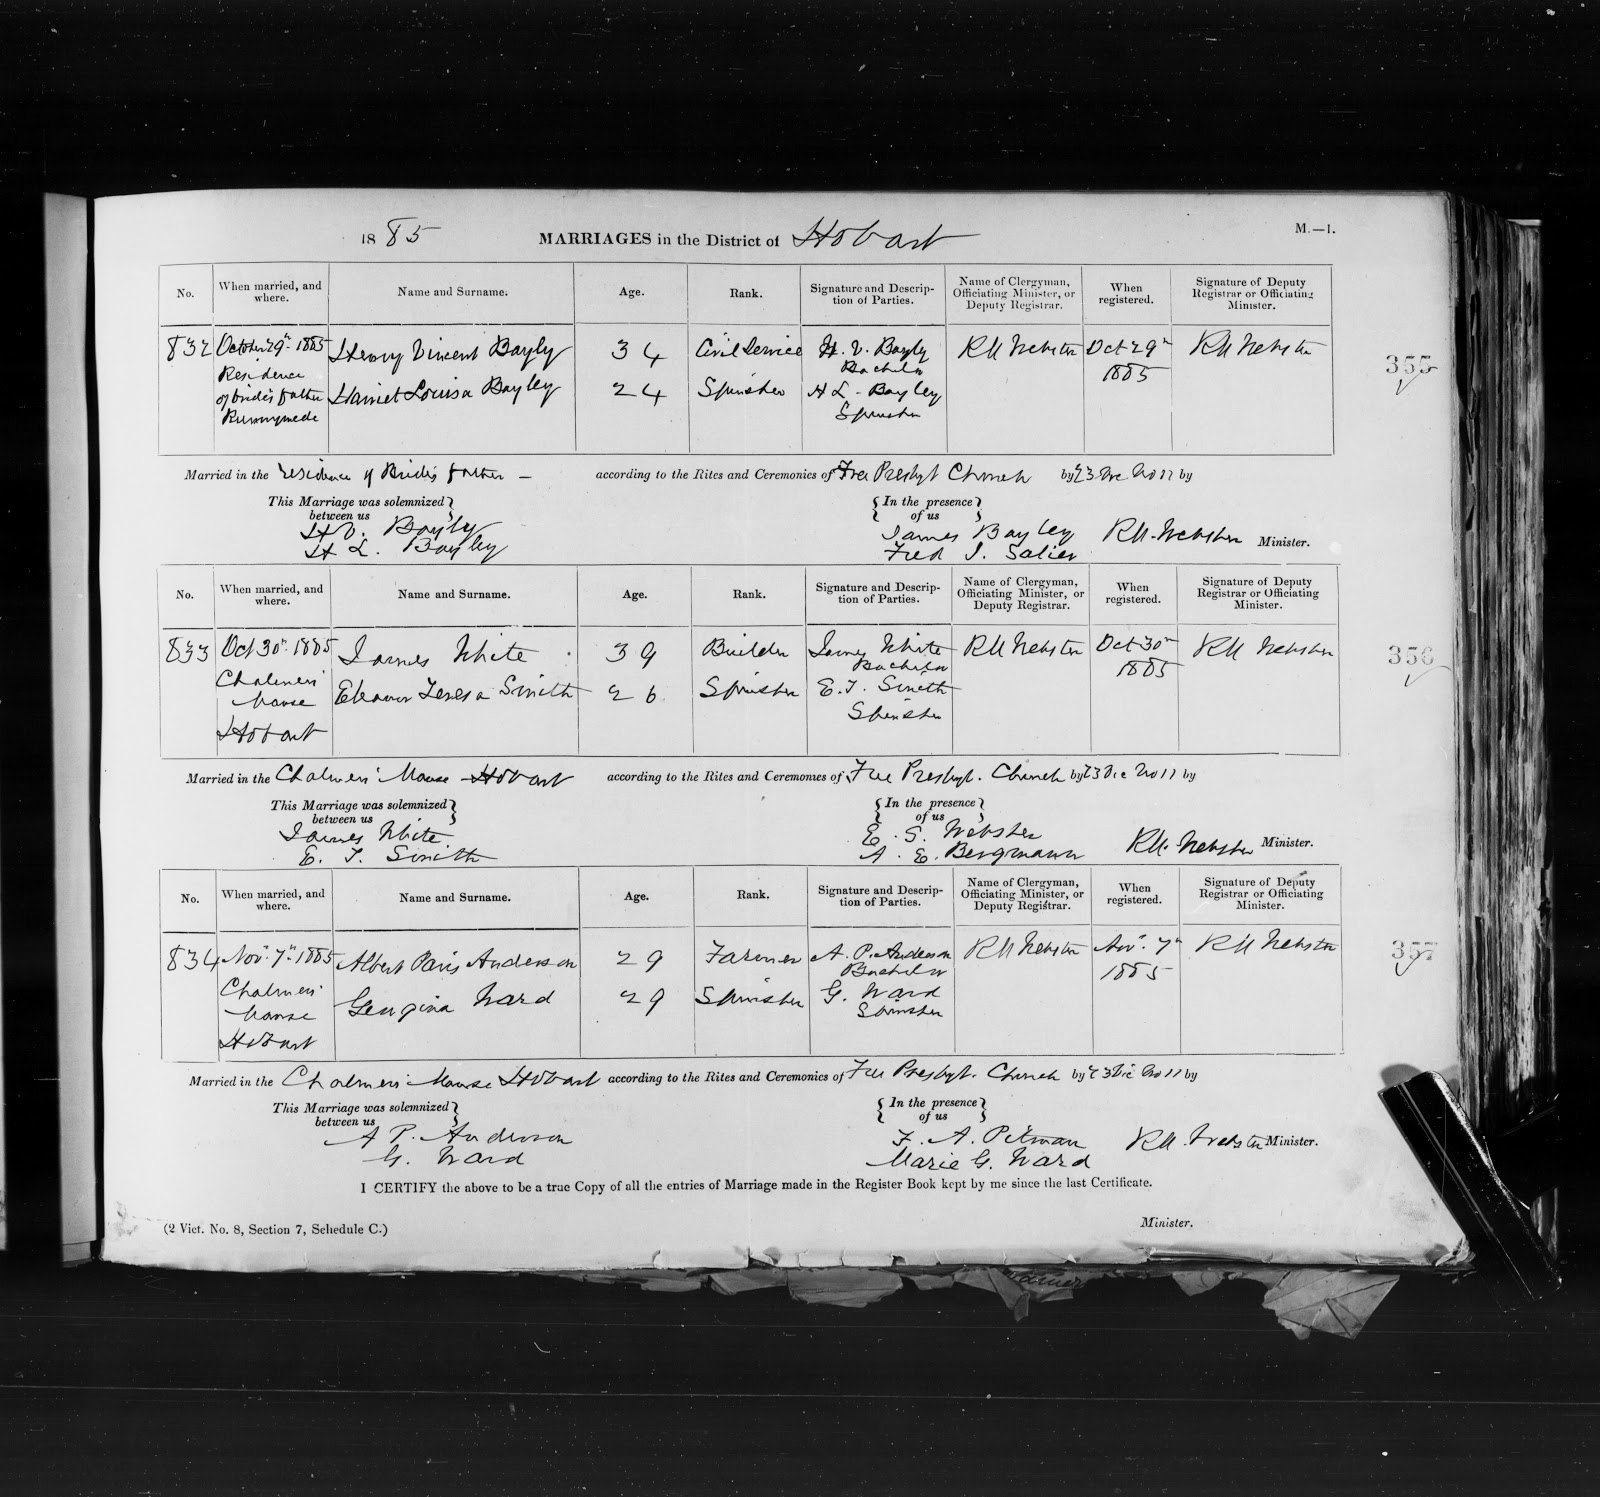 1885 MARRIAGES in the District of Hobart M.—1.
No. When married, and where. Name and Surname. Age. Rank. Signature and Description of Parties. Name of Clergyman, Officiating Minister, or Deputy Registrar. When registered. Signature of Deputy Registrar or Officiating Minister.
832 October 29th 1885 Henry Vincent Bayly 34 Civil Service H. V. Bayly RM Webster Oct 29th RM Webster 355
Residence Bachelor 1885
of bride's father Harriet Louisa Bayley 24 Spinster H L. Bayley
Runnymede Spinster
Married in the residence of Bride's father — according to the Rites and Ceremonies of Free Presbyt Church by 23 Vic No 11 by
This Marriage was solemnized between us In the presence of us
H V. Bayly James Bayley RM. Webster Minister.
H L. Bayley Fred J. Salier
No. When married, and where. Name and Surname. Age. Rank. Signature and Description of Parties. Name of Clergyman, Officiating Minister, or Deputy Registrar. When registered. Signature of Deputy Registrar or Officiating Minister.
833 Oct 30th 1885 James White 39 Builder James White RM Webster Oct 30th RM Webster 356
Chalmers' Bachelor 1885
Manse Eleanor Teresa Smith 26 Spinster E. T. Smith
Hobart Spinster
Married in the Chalmers' Manse Hobart according to the Rites and Ceremonies of Free Presbyt. Church by 23 Vic No 11 by
This Marriage was solemnized between us In the presence of us
James White E. S. Webster RM. Webster Minister.
E. T. Smith A. E. Bergmann
No. When married, and where. Name and Surname. Age. Rank. Signature and Description of Parties. Name of Clergyman, Officiating Minister, or Deputy Registrar. When registered. Signature of Deputy Registrar or Officiating Minister.
834 Nov. 7th 1885 Albert Paris Anderson 29 Farmer A. P. Anderson RM Webster Nov. 7th RM Webster 357
Chalmers' Bachelor 1885
Manse Georgina Ward 29 Spinster G. Ward
Hobart Spinster
Married in the Chalmers' Manse Hobart according to the Rites and Ceremonies of Free Presbyt. Church by 23 Vic No 11 by
This Marriage was solemnized between us In the presence of us
A P. Anderson F. A. Pitman RM. Webster Minister.
G. Ward Marie G. Ward
I CERTIFY the above to be a true Copy of all the entries of Marriage made in the Register Book kept by me since the last Certificate.
(2 Vict. No. 8, Section 7, Schedule C.) Minister.